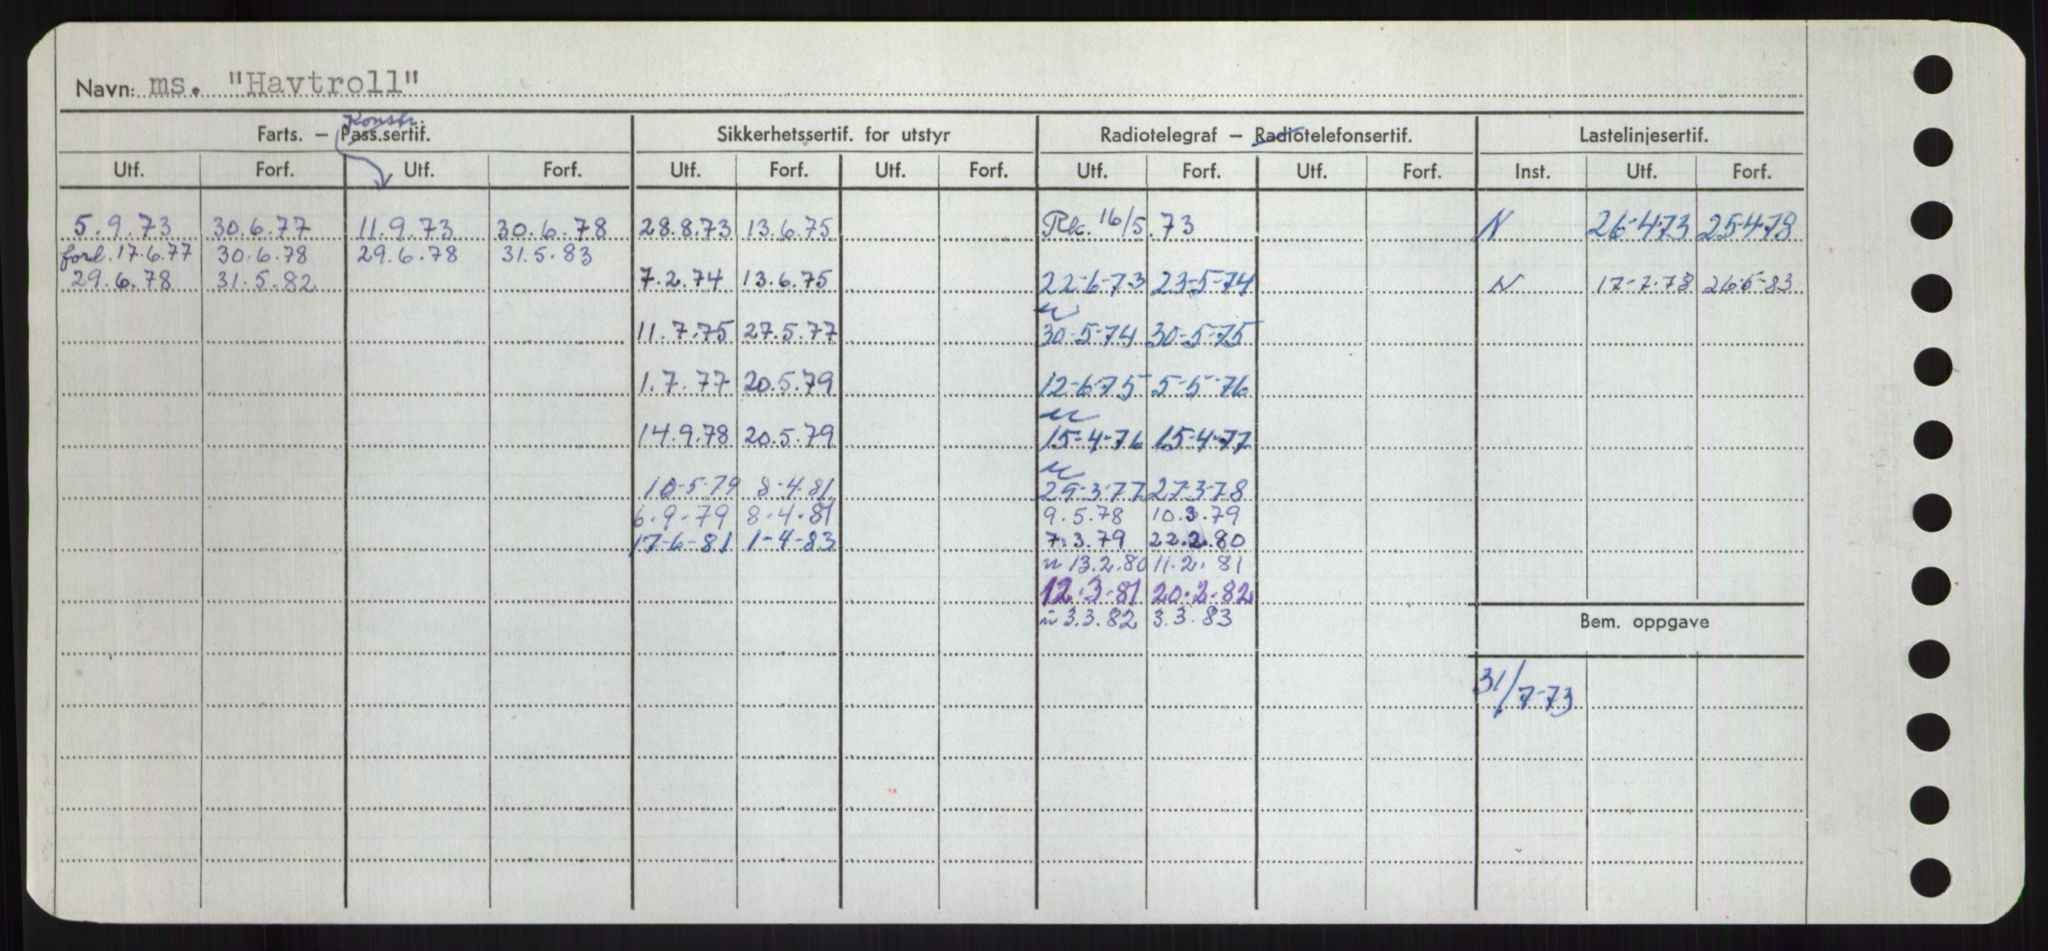 Navn: ms. "Havtroll"
Konstr.
Farts. – Pass.sertif. Sikkerhetssertif. for utstyr Radiotelegraf – Radiotelefonsertif. Lastelinjesertif.
Utf. Forf. Utf. Forf. Utf. Forf. Utf. Forf. Utf. Forf. Utf. Forf. Inst. Utf. Forf.
5.9.73 30.6.77 11.9.73 30.6.78 28.8.73 13.6.75 Rk. 16/5.73 N 26-4-73 25-4-78
forl. 17.6.77 30.6.78 29.6.78 31.5.83
29.6.78 31.5.82 7.2.74 13.6.75 22-6-73 23-5-74 N 17-7-78 26-5-83
11.7.75 27.5.77 30-5-74 30-5-75
1.7.77 20.5.79 12-6-75 5-5-76
14.9.78 20.5.79 15-4-76 15-4-77
10-5-79 8-4-81 29-3-77 27-3-78
6.9-79 8-4-81 9.5.78 10.3.79
17-6-81 1-4-83 7.3.79 22.2.80
n 13.2.80 11.2.81
12.3-81 20.2.82
n 3.3.82 3.3.83
Bem. oppgave
31/7-73